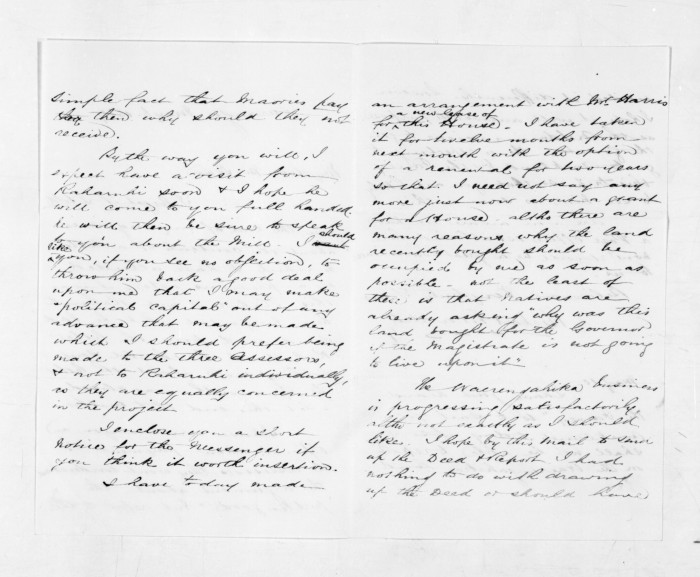 simple fact that Maories pay
then why should they not
receive.
By the way you will, I
expect have a visit from
Raharuhi soon & I hope he
will come to you full handed.
He will then be sure to speak
to you about the Mill. I should
like you, if you see no objection, to
throw him back a good deal
upon me that I may make
"political capital" out of any
advance that may be made
which I should prefer being
made to the three Assessors,
& not to Raharuhi individually,
as they are equally concerned
in the project
I enclose you a short
Notice for the Messenger if
you think it worth insertion.
I have to-day made
an arrangement with Mr. Harris
for a new lease of this House. I have taken
it for twelve months from
next month with the option
of a renewal for two years
so that I need not say any
more just now about a grant
for a House. altho there are
many reasons why the land
recently bought should be
occupied by me as soon as
possible. not the least of
these is that Natives are
already asking "why was this
land bought for the Governor
if the Magistrate is not going
to live upon it"
The Waerengahika business
is progressing satisfactorily
altho not exactly as I should
like. I hope by this Mail to send
up the Deed & Report I had
nothing to do with drawing
up the Deed or should have